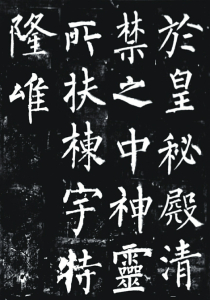 於皇秘殿清
禁之中神靈
所扶棟宇特
隆雄